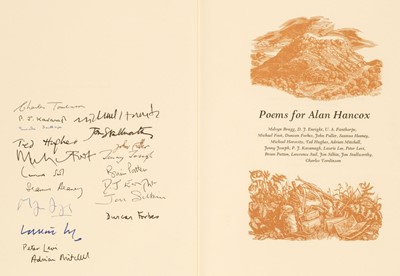 Charles Tomlinson
P. J. Kavanagh
Michael Horovitz
Ted Hughes
Jon Stallworthy
John Fuller
Jenny Joseph
Brian Patten
Seamus Heaney
D J Enright
Jon Silkin
Duncan Forbes
Laurie Lee
Peter Levi
Adrian Mitchell
Poems for Alan Hancox
Melvyn Bragg, D. J. Enright, U. A. Fanthorpe,
Michael Foot, Duncan Forbes, John Fuller, Seamus Heaney,
Michael Horovitz, Ted Hughes, Adrian Mitchell,
Jenny Joseph, P. J. Kavanagh, Laurie Lee, Peter Levi,
Brian Patten, Lawrence Sail, Jon Silkin, Jon Stallworthy,
Charles Tomlinson